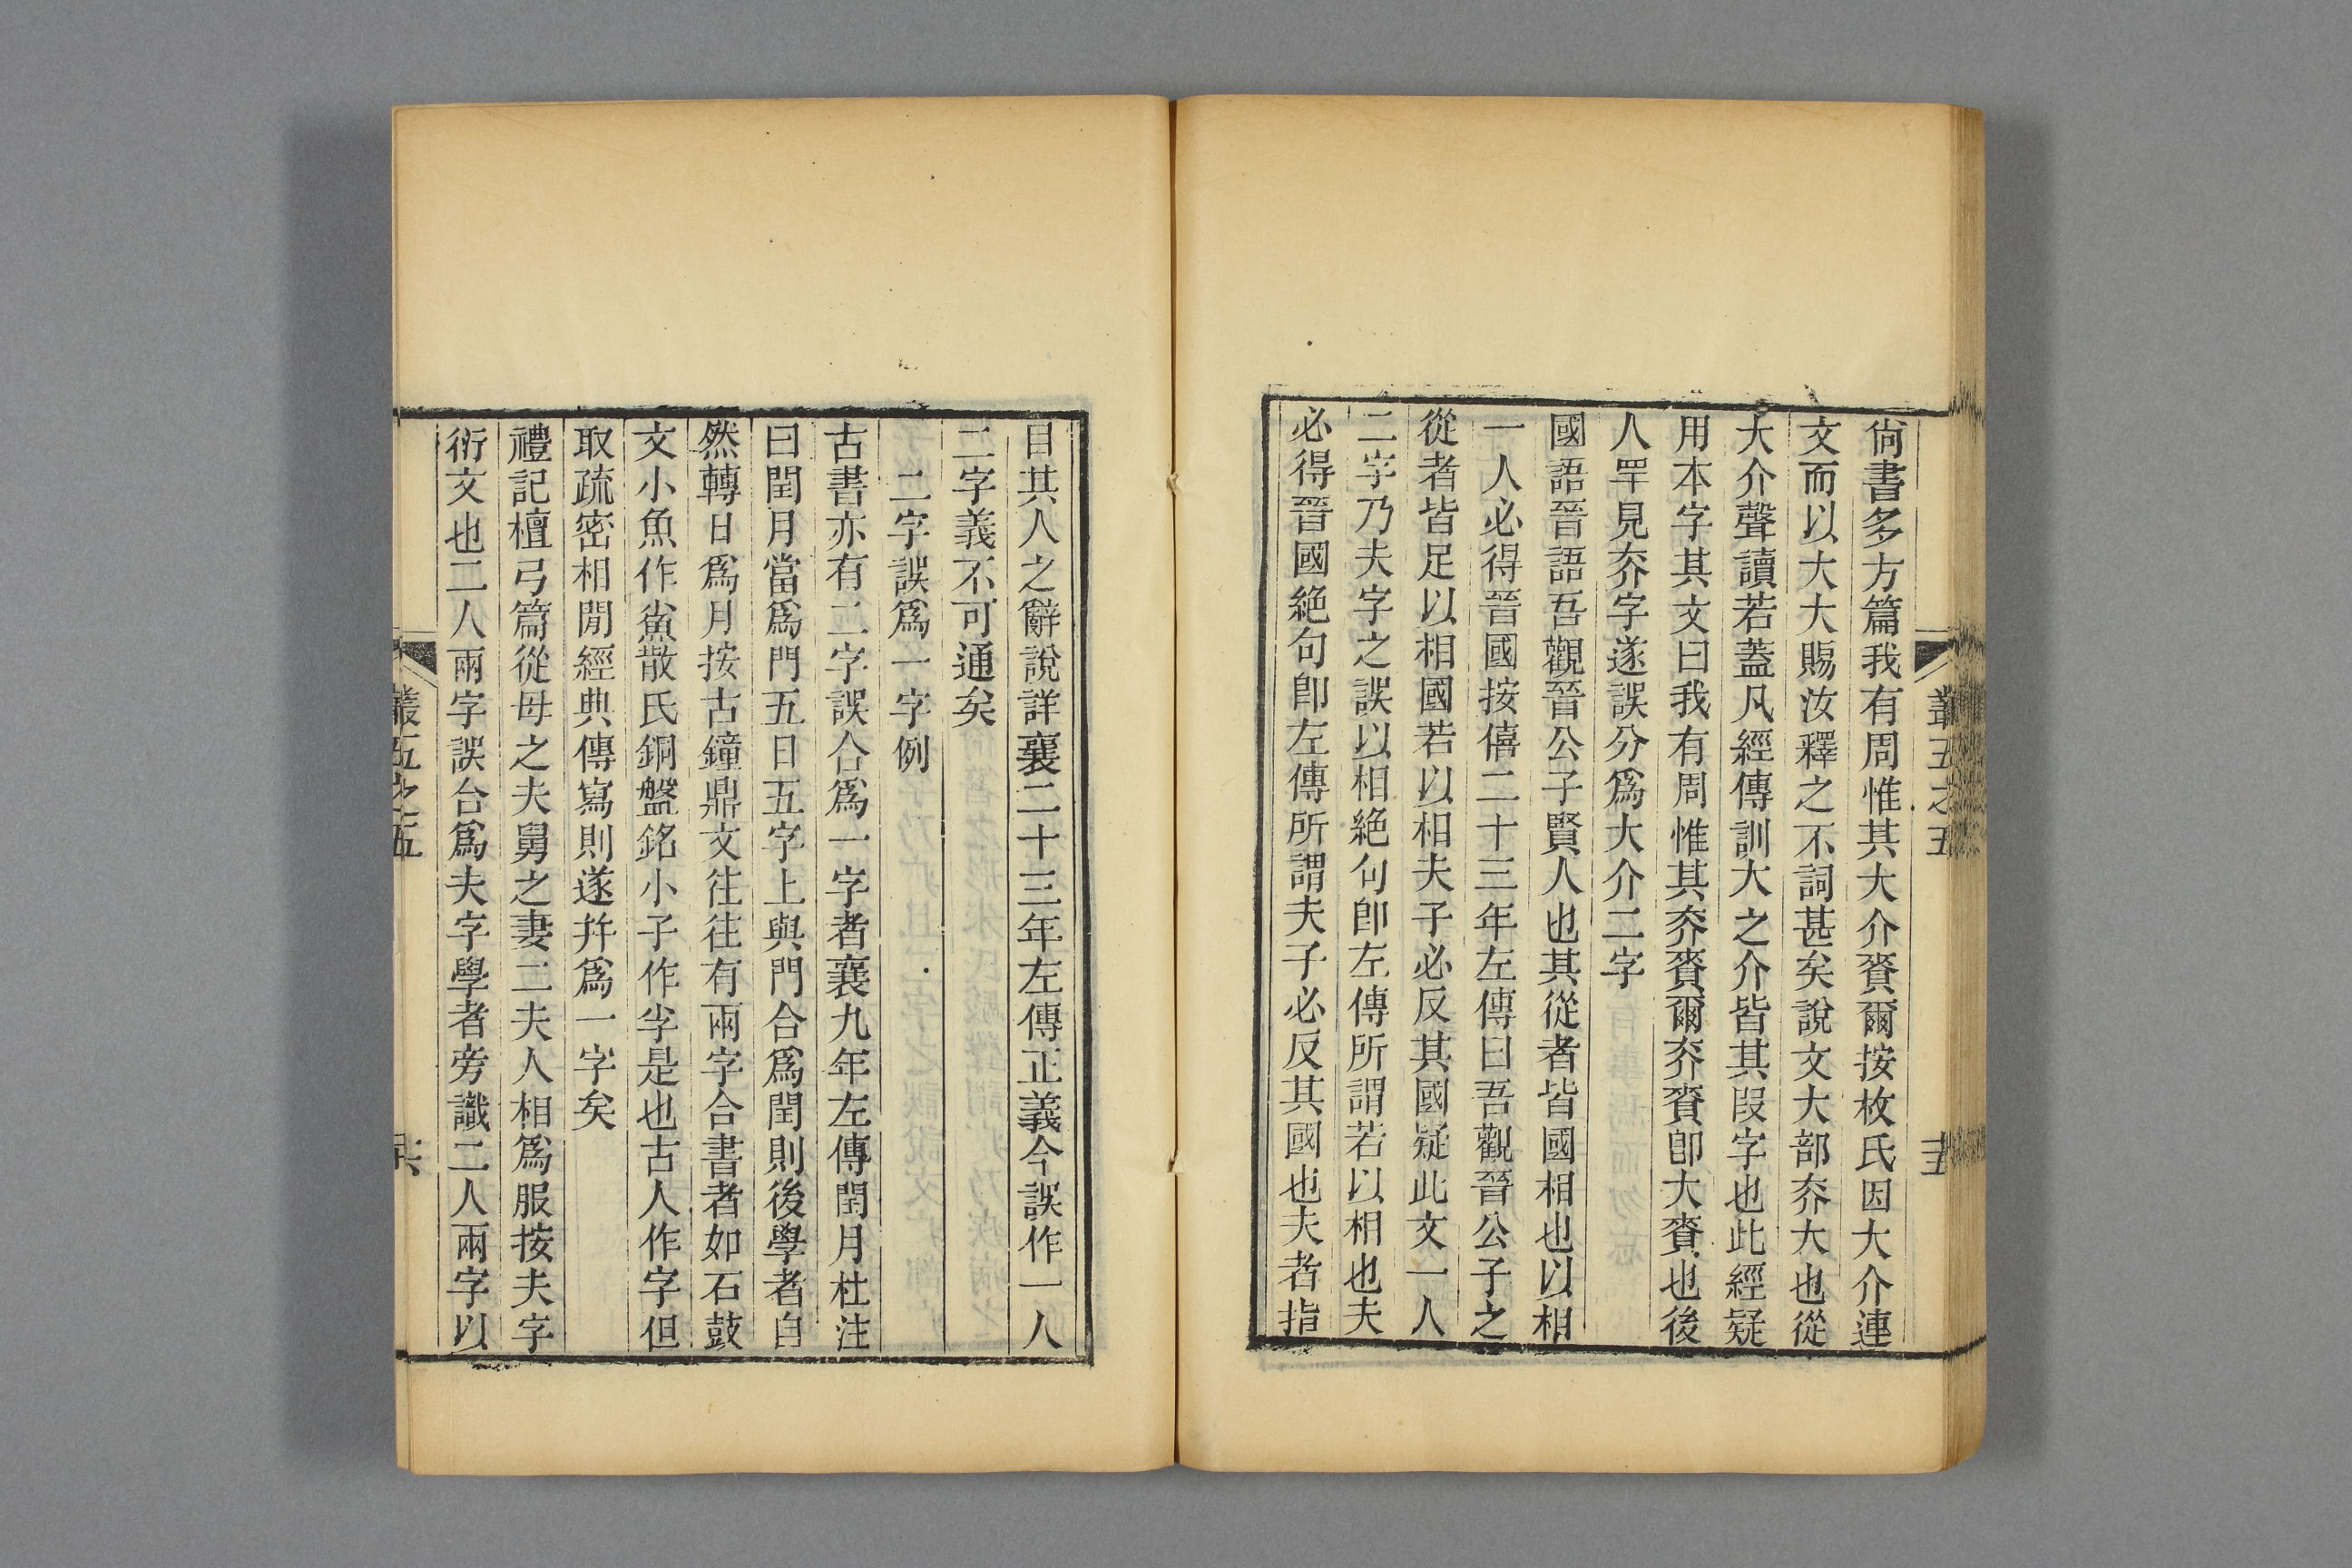 叢五之五
十五
尙書多方篇我有周惟其大介賚爾按枚氏因大介連
文而以大大賜汝釋之不詞甚矣說文大部奒大也從
大介聲讀若蓋凡經傳訓大之介皆其段字也此經疑
用本字其文曰我有周惟其奒賚爾奒賚卽大賚也後
人罕見奒字遂誤分爲大介二字
國語晉語吾觀晉公子賢人也其從者皆國相也以相
一人必得晉國按僖二十三年左傳曰吾觀晉公子之
從者皆足以相國若以相夫子必反其國疑此文一人
二字乃夫字之誤以相絶句卽左傳所謂若以相也夫
必得晉國絶句卽左傳所謂夫子必反其國也夫者指
目其人之辭說詳襄二十三年左傳正義今誤作一人
二字義不可通矣
二字誤爲一字例
古書亦有二字誤合爲一字者襄九年左傳閏月杜注
曰閏月當爲門五日五字上與門合爲閏則後學者自
然轉日爲月按古鐘鼎文往往有兩字合書者如石鼓
文小魚作𩵖散氏銅盤銘小子作𡭔是也古人作字但
取疏密相閒經典傳寫則遂幷爲一字矣
禮記檀弓篇從母之夫舅之妻二夫人相爲服按夫字
衍文也二人兩字誤合爲夫字學者旁識二人兩字以
叢五之五